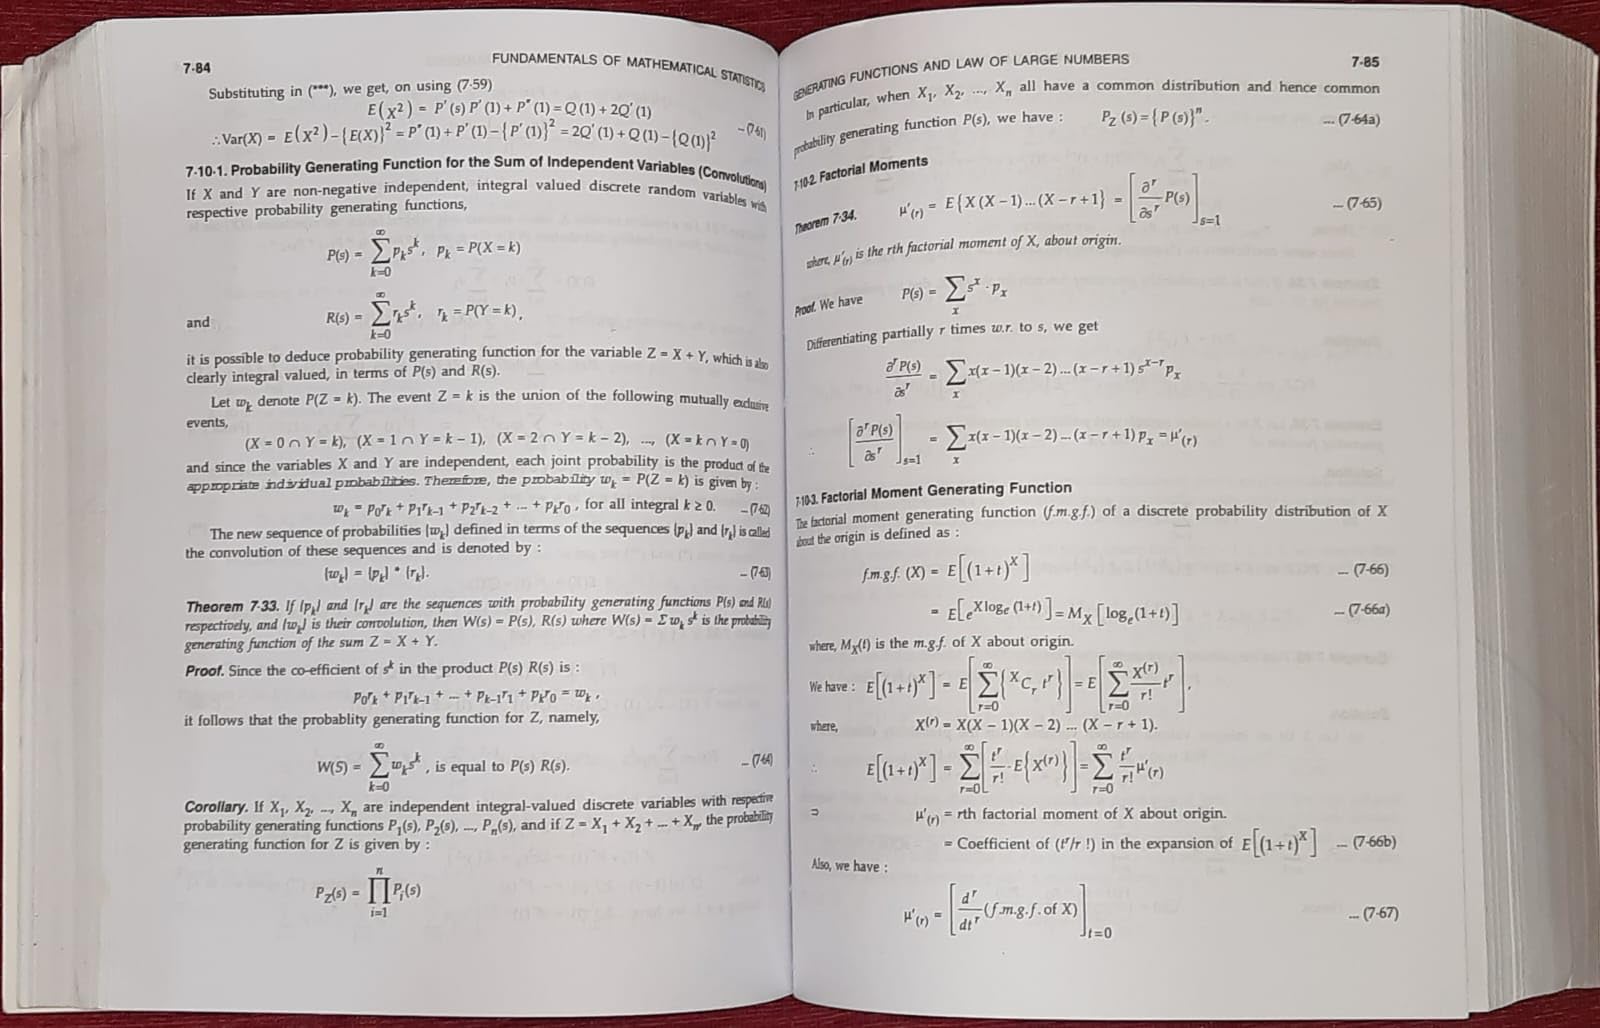 7·84
FUNDAMENTALS OF MATHEMATICAL STATISTICS
Substituting in (***), we get, on using (7·59)
E(X²) = P'(s) P'(1) + P"(1) = Q(1) + 2Q'(1)
∴ Var(X) = E(X²) – {E(X)}² = P"(1) + P'(1) – {P'(1)}² = 2Q'(1) + Q(1) – {Q(1)}² ...(7·61)
7·10·1. Probability Generating Function for the Sum of Independent Variables (Convolutions)
If X and Y are non-negative independent, integral valued discrete random variables with
respective probability generating functions,
P(s) = ∑_{k=0}^{∞} p_k s^k, p_k = P(X = k)
and R(s) = ∑_{k=0}^{∞} r_k s^k, r_k = P(Y = k),
it is possible to deduce probability generating function for the variable Z = X + Y, which is also
clearly integral valued, in terms of P(s) and R(s).
Let w_k denote P(Z = k). The event Z = k is the union of the following mutually exclusive
events,
(X = 0 ∩ Y = k), (X = 1 ∩ Y = k – 1), (X = 2 ∩ Y = k – 2), ..., (X = k ∩ Y = 0)
and since the variables X and Y are independent, each joint probability is the product of the
appropriate individual probabilities. Therefore, the probability w_k = P(Z = k) is given by :
w_k = p_0 r_k + p_1 r_{k–1} + p_2 r_{k–2} + ... + p_k r_0, for all integral k ≥ 0. ...(7·62)
The new sequence of probabilities {w_k} defined in terms of the sequences {p_k} and {r_k} is called
the convolution of these sequences and is denoted by :
{w_k} = {p_k} * {r_k}. ...(7·63)
Theorem 7·33. If {p_k} and {r_k} are the sequences with probability generating functions P(s) and R(s)
respectively, and {w_k} is their convolution, then W(s) = P(s), R(s) where W(s) = Σ w_k s^k is the probability
generating function of the sum Z = X + Y.
Proof. Since the co-efficient of s^k in the product P(s) R(s) is :
p_0 r_k + p_1 r_{k–1} + ... + p_{k–1} r_1 + p_k r_0 = w_k,
it follows that the probablity generating function for Z, namely,
W(S) = ∑_{k=0}^{∞} w_k s^k, is equal to P(s) R(s). ...(7·64)
Corollary. If X_1, X_2, ..., X_n are independent integral-valued discrete variables with respective
probability generating functions P_1(s), P_2(s), ..., P_n(s), and if Z = X_1 + X_2 + ... + X_n, the probability
generating function for Z is given by :
P_Z(s) = ∏_{i=1}^{n} P_i(s)
GENERATING FUNCTIONS AND LAW OF LARGE NUMBERS
7·85
In particular, when X_1, X_2, ..., X_n all have a common distribution and hence common
probability generating function P(s), we have : P_Z(s) = {P(s)}^n. ...(7·64a)
7·10·2. Factorial Moments
Theorem 7·34. μ'_(r) = E{X(X – 1)...(X – r + 1} = [∂^r/∂s^r P(s)]_{s=1} ...(7·65)
where, μ'_(r) is the rth factorial moment of X, about origin.
Proof. We have P(s) = ∑_x s^x · p_x
Differentiating partially r times w.r. to s, we get
∂^r P(s)/∂s^r = ∑_x x(x – 1)(x – 2)...(x – r + 1) s^{x–r} p_x
∴ [∂^r P(s)/∂s^r]_{s=1} = ∑_x x(x – 1)(x – 2)...(x – r + 1) p_x = μ'_(r)
7·10·3. Factorial Moment Generating Function
The factorial moment generating function (f.m.g.f.) of a discrete probability distribution of X
about the origin is defined as :
f.m.g.f. (X) = E[(1 + t)^X] ...(7·66)
= E[e^{X log_e (1+t)}] = M_X [log_e(1 + t)] ...(7·66a)
where, M_X(t) is the m.g.f. of X about origin.
We have : E[(1 + t)^X] = E[∑_{r=0}^{∞} {^X C_r t^r}] = E[∑_{r=0}^{∞} X^(r)/r! t^r],
where, X^(r) = X(X – 1)(X – 2) ... (X – r + 1).
∴ E[(1 + t)^X] = ∑_{r=0}^{∞} [t^r/r! · E{X^(r)}] = ∑_{r=0}^{∞} t^r/r! μ'_(r)
⊃ μ'_(r) = rth factorial moment of X about origin.
= Coefficient of (t^r/r !) in the expansion of E[(1 + t)^X] ...(7·66b)
Also, we have :
μ'_(r) = [d^r/dt^r (f.m.g.f. of X)]_{t=0} ...(7·67)